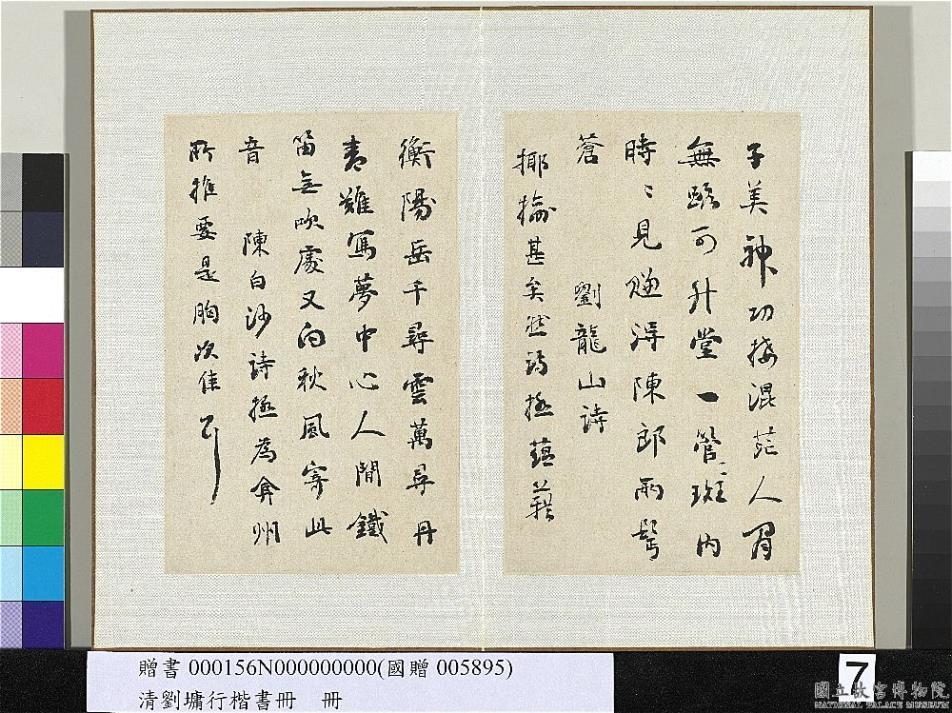 子美神功接混茫人間
無路可升堂一管斑內
時〻見賺得陳郎兩鬢
蒼 劉龍山詩
揶揄甚矣然詩極蘊藉
衡陽岳千尋雲萬尋丹
青難寫夢中心人間鐵
笛無吹處又向秋風寄此
音 陳白沙詩極為弇州
所推要是胸次佳耳
贈書 000156N000000000(國贈 005895)
清劉墉行楷書冊 冊
7
國立故宮博物院
NATIONAL PALACE MUSEUM